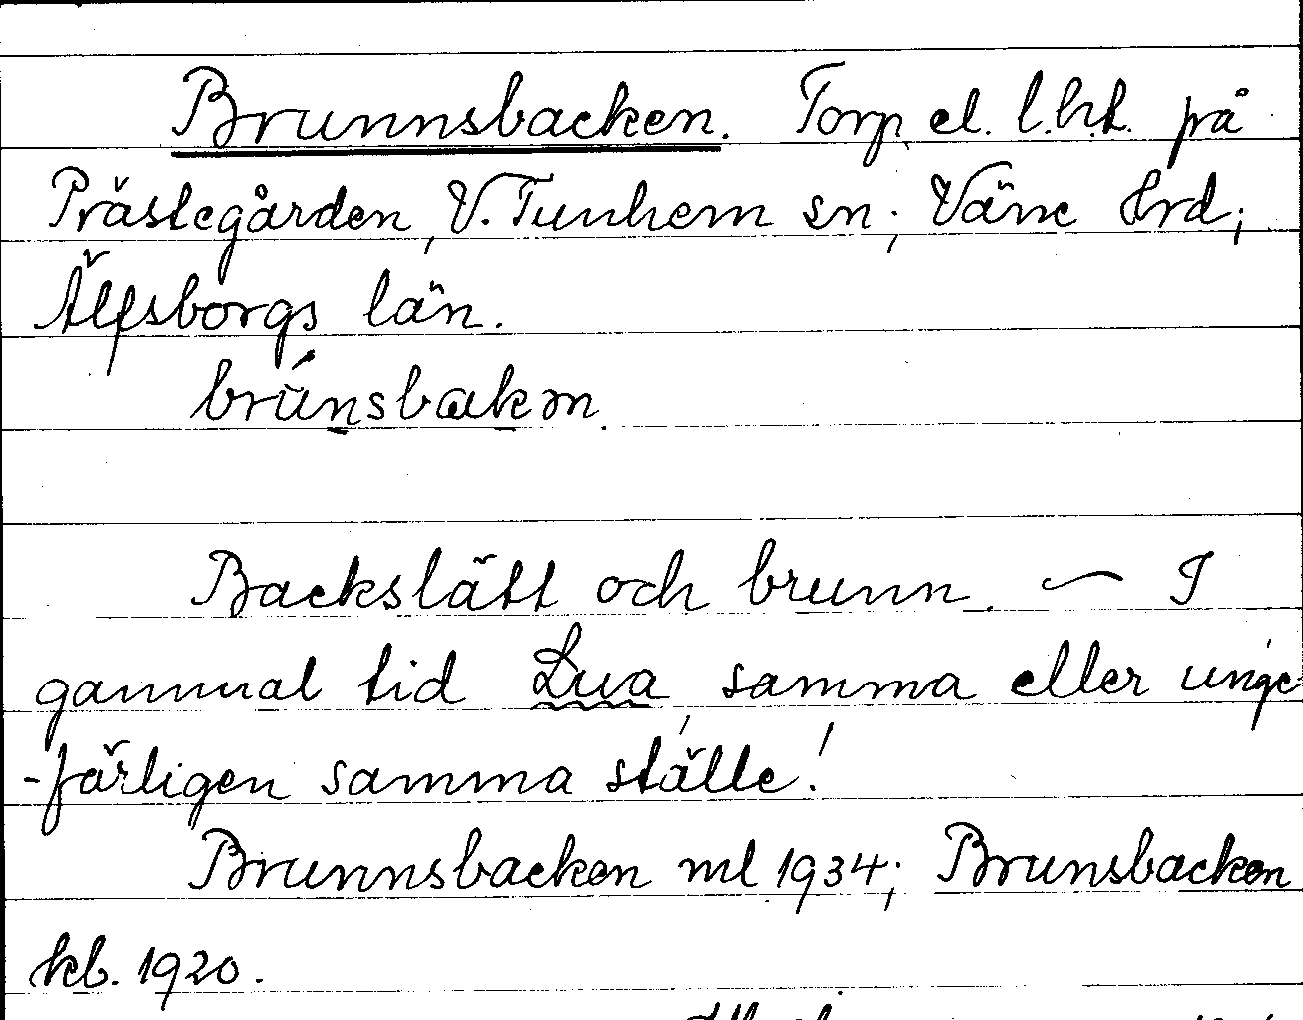 Brunnsbacken. Torp el. l.h.t. på
Prästegården, V. Tunhem sn; Väne Hrd;
Älfsborgs län.
brúnsbakən.
Backslätt och brunn. — I
gammal tid Lua, samma eller unge
-färligen samma ställe!
Brunnsbacken ml 1934; Brunsbacken
kb. 1920.